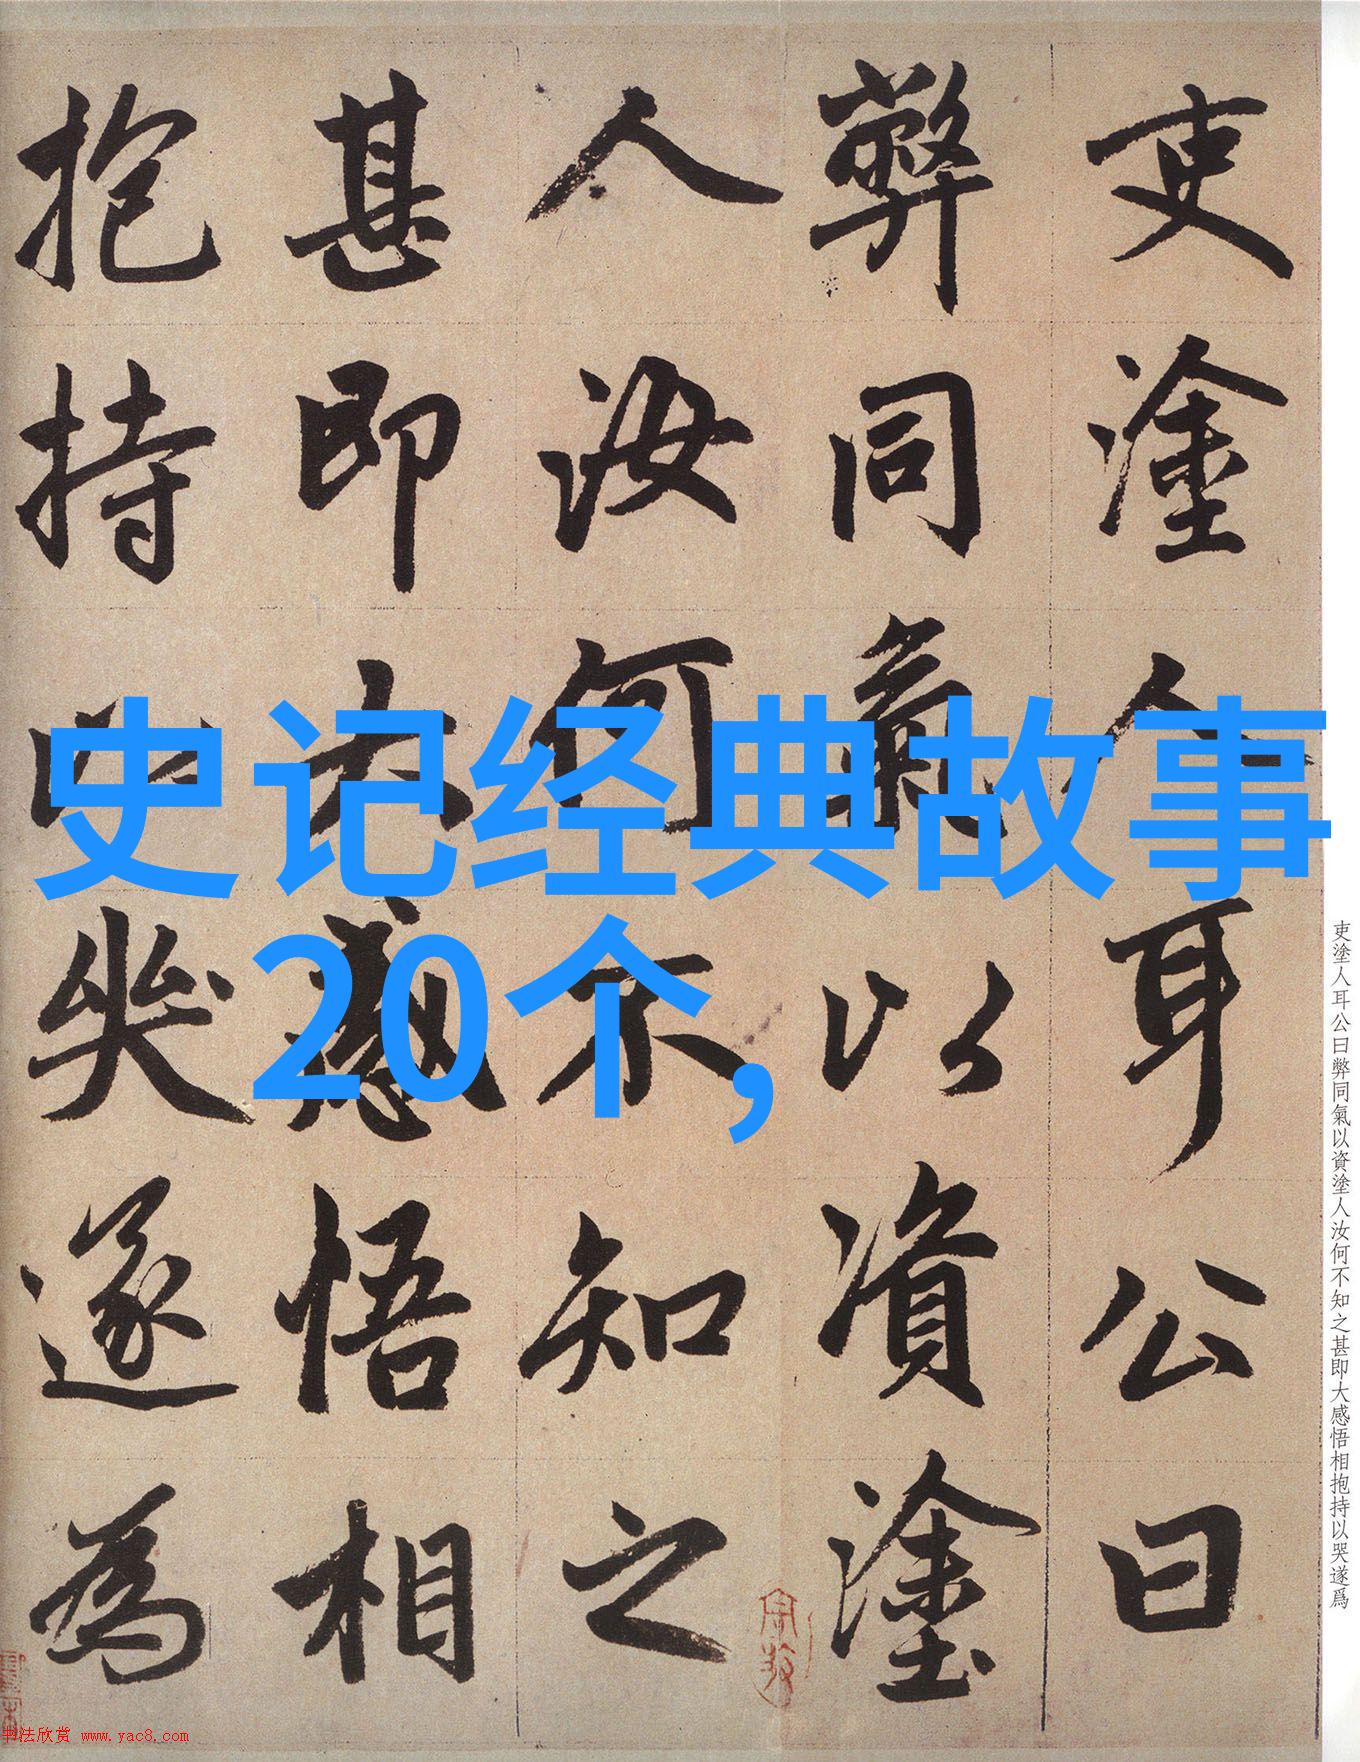 吏塗人耳公曰
弊同氣以資塗
人汝何不知之
甚即大感悟相
抱持以哭遂為
史记经典故事
20个,
吏塗人耳公曰弊同氣以資塗人汝何不知之甚即大感悟相抱持以哭遂爲
书法欣赏 www.yac8.com